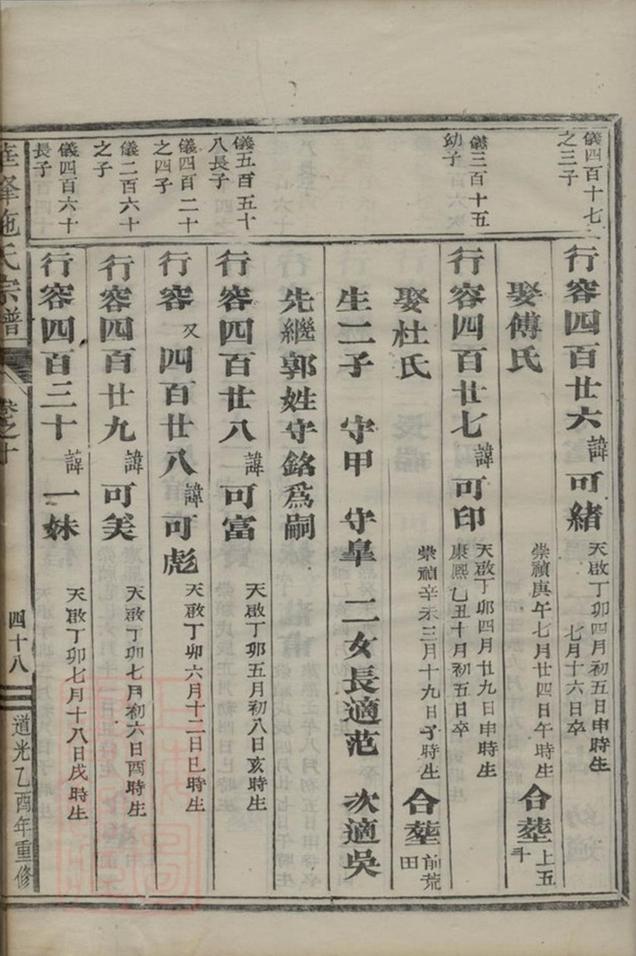 儀四百十七
之三子
行容四百廿六 諱可緒 天啟丁卯四月初五日申時生
七月十六日卒
娶傅氏 崇禎庚午七月廿四日午時生 合塟 上五
斗
儀三百十五
幼子
行容四百廿七 諱可印 天啟丁卯四月廿九日申時生
康熙乙丑十月初五日卒
娶杜氏 崇禎辛未三月十九日子時生 合塟 前荒
田
生二子 守甲 守皐 二女長適范 次適吳
先繼郭姓守銘爲嗣
儀五百五十
八長子
行容四百廿八 諱可富 天啟丁卯五月初八日亥時生
儀四百二十
之四子
行容又四百廿八 諱可彪 天啟丁卯六月十二日巳時生
儀二百六十
之子
行容四百廿九 諱可美 天啟丁卯七月初六日酉時生
儀四百六十
長子
行容四百三十 諱一妹 天啟丁卯七月十八日戌時生
峰施氏宗譜 卷之十 四十八 道光乙酉年重修